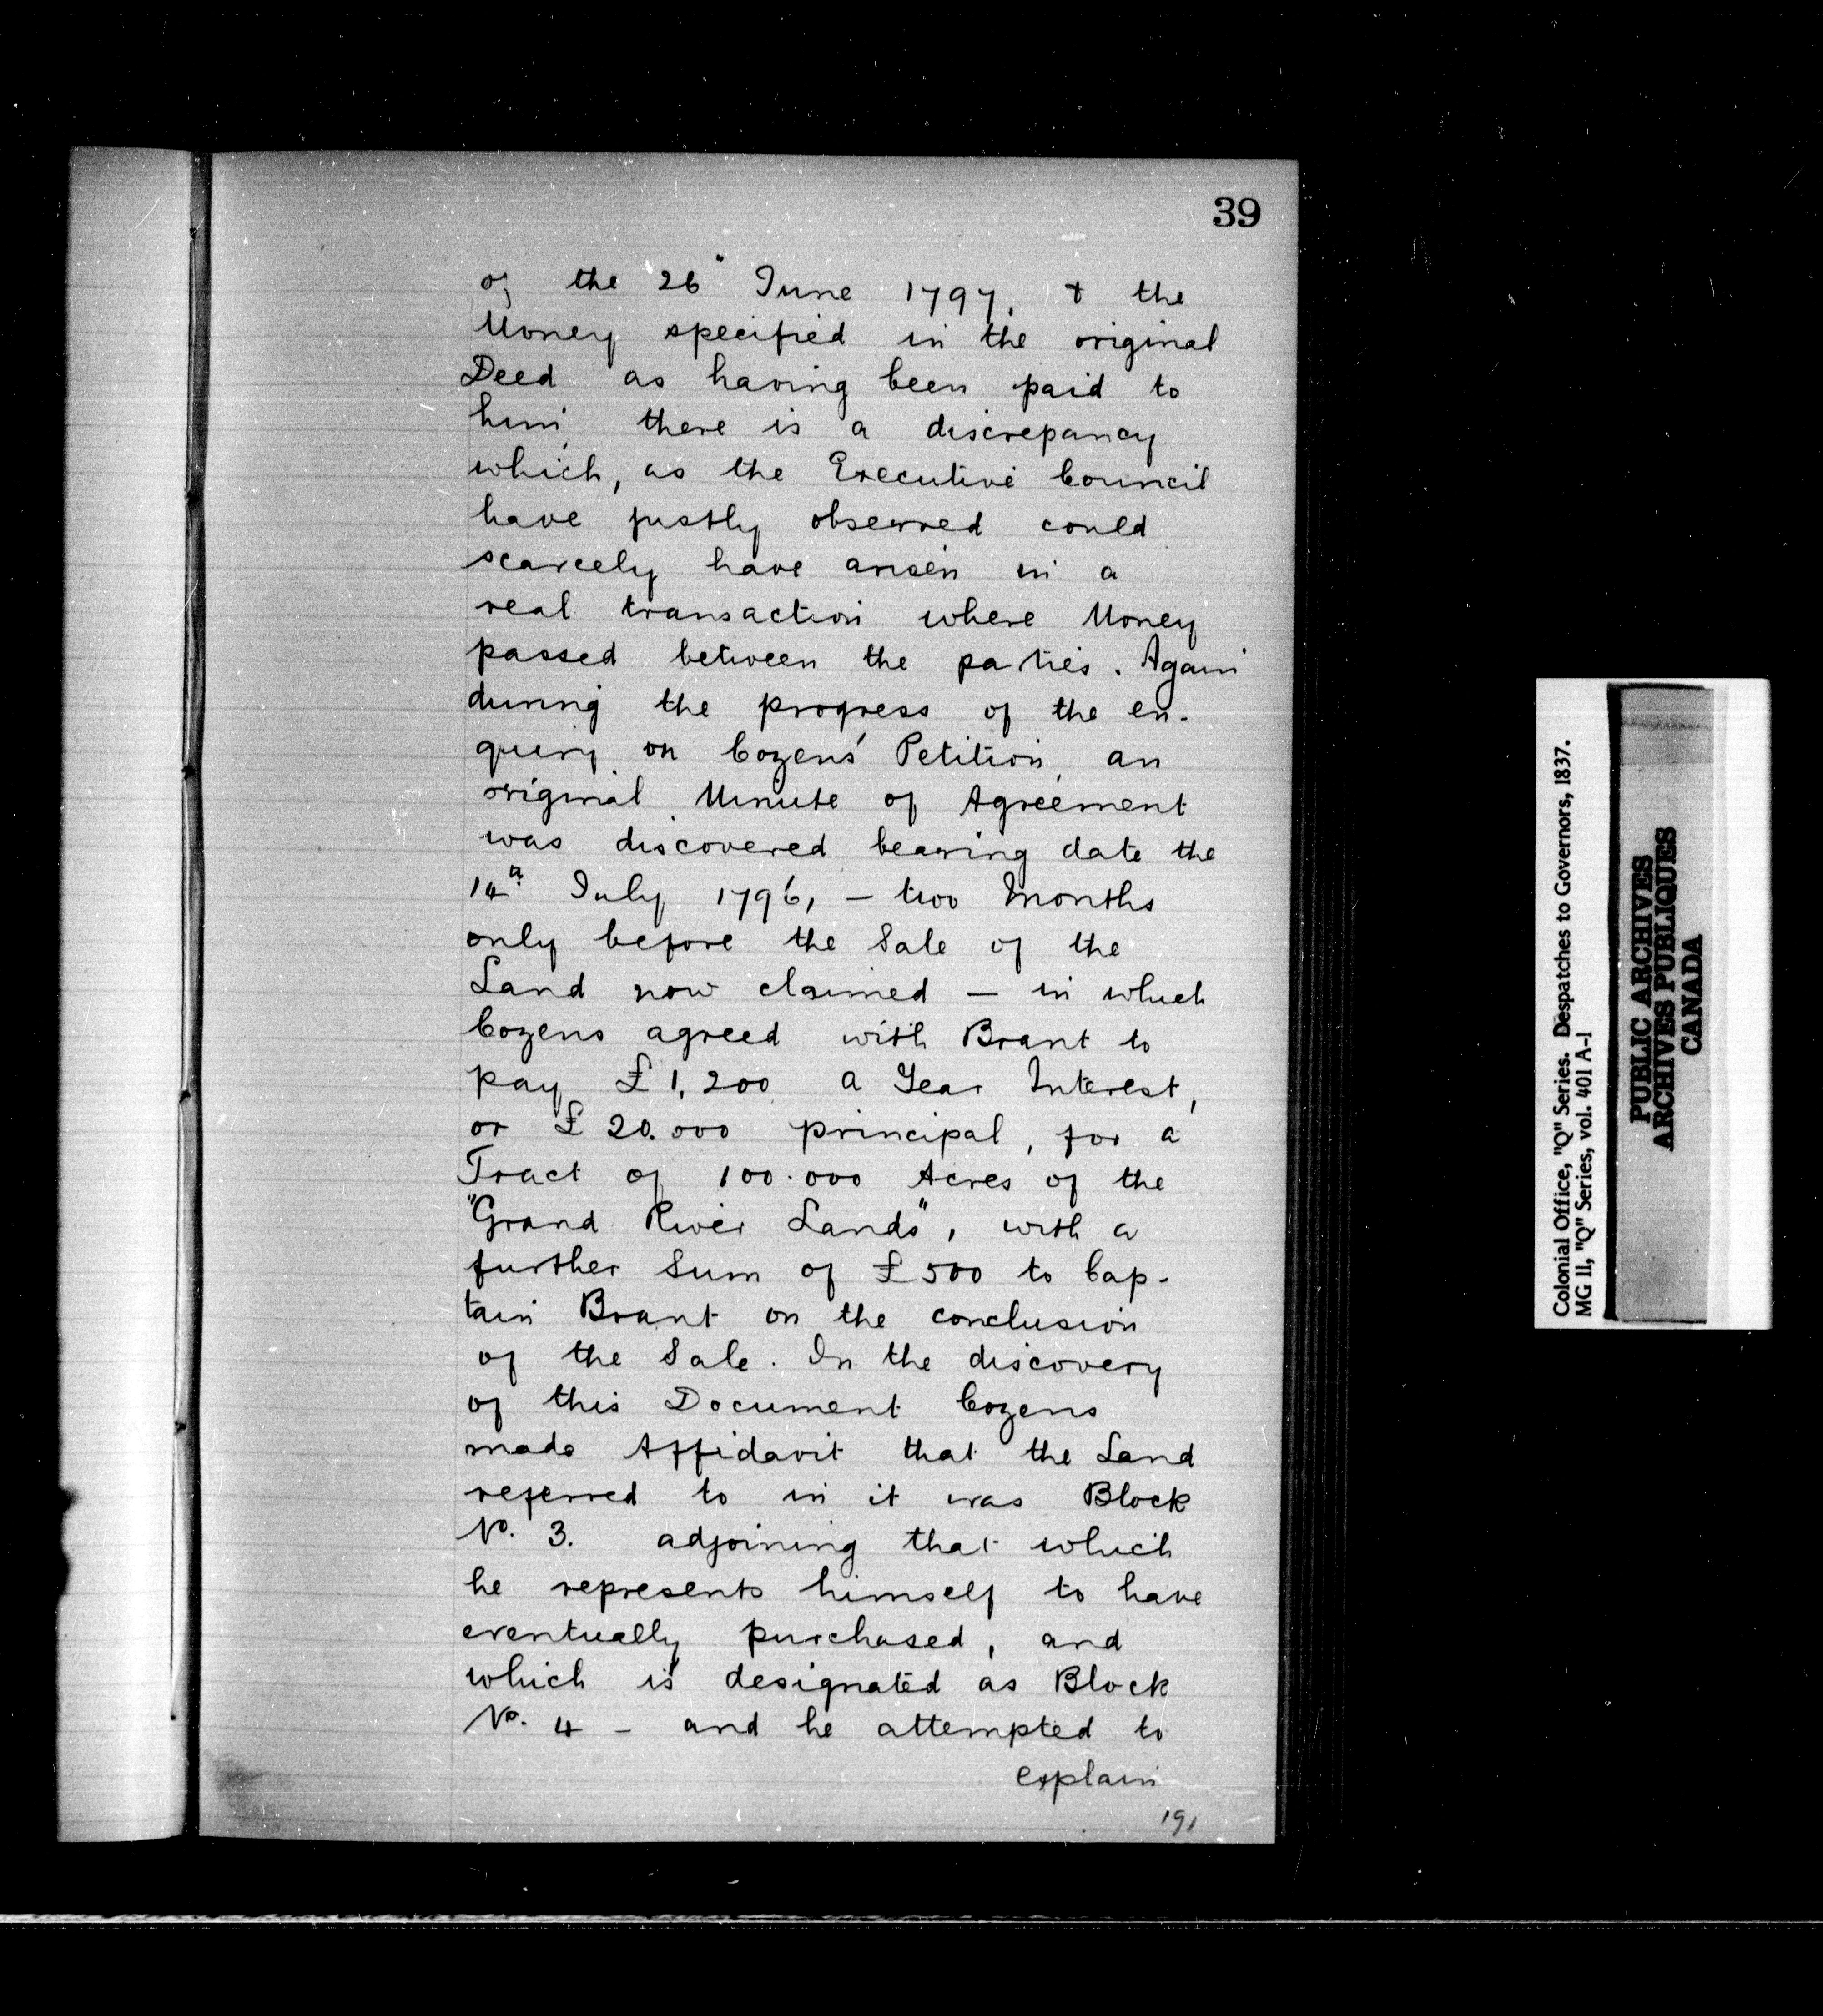 39
of the 26" June 1797, & the
Money specified in the original
Deed as having been paid to
him, there is a discrepancy
which, as the Executive Council
have justly observed could
scarcely have arisen in a
real transaction where Money
passed between the parties. Again
during the progress of the en-
quiry on Cozens' Petition, an
original Minute of Agreement
was discovered bearing date the
14th July 1796, - two Months
only before the Sale of the
Land now claimed - in which
Cozens agreed with Brant to
pay £1,200 a Year Interest,
or £20.000 principal, for a
Tract of 100.000 Acres of the
"Grand River Lands", with a
further Sum of £500 to Cap-
tain Brant on the conclusion
of the Sale. In the discovery
of this Document Cozens
made Affidavit that the Land
referred to in it was Block
No. 3. adjoining that which
he represents himself to have
eventually purchased, and
which is designated as Block
No. 4 - and he attempted to
explain
191
Colonial Office, "Q" Series. Despatches to Governors, 1837.
MG 11, "Q" Series, vol. 401 A-1
PUBLIC ARCHIVES
ARCHIVES PUBLIQUES
CANADA